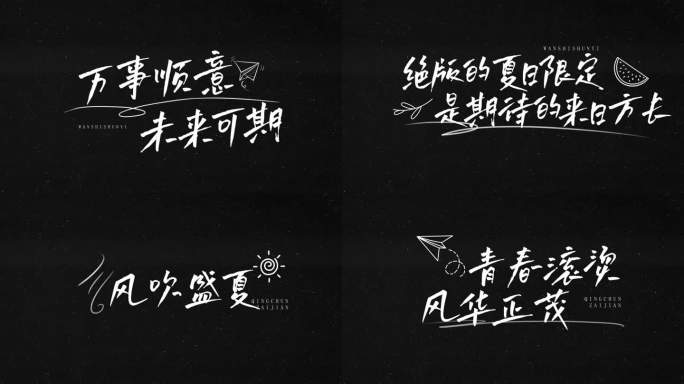 万事顺意
WANSHISHUNYI
未来可期
WANSHISHUNYI
绝版的夏日限定
是期待的来日方长
风吹盛夏
QINGCHUN
ZAIJIAN
青春滚烫
风华正茂
QINGCHUN
ZAIJIAN